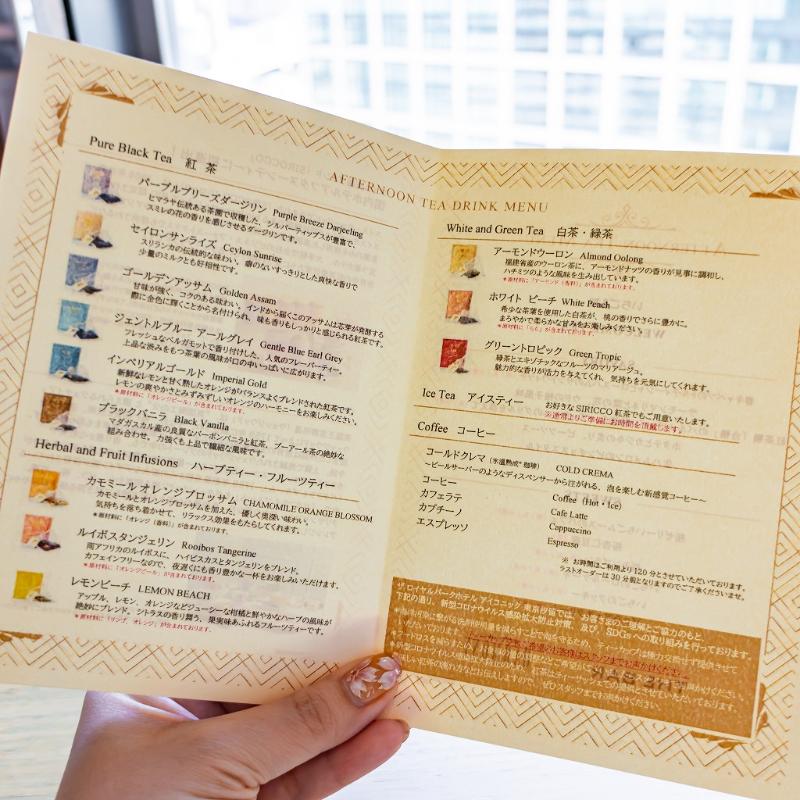 AFTERNOON TEA DRINK MENU
Pure Black Tea 紅茶
パープルブリーズダージリン Purple Breeze Darjeeling
ヒマラヤ伝統ある茶園で収穫した、シルバーティップスが豊富で、
スミレの花の香りを感じさせるダージリンです。
セイロンサンライズ Ceylon Sunrise
スリランカの伝統的な味わい。癖のないすっきりとした爽快な香りで
少量のミルクとも好相性です。
ゴールデンアッサム Golden Assam
甘味が強く、コクのある味わい。インドから届くこのアッサムは芯芽が発酵する
際に金色に輝くことから名付けられ、味も香りもしっかりと感じられる紅茶です。
ジェントルブルー アールグレイ Gentle Blue Earl Grey
フレッシュなベルガモットで香り付けした、人気のフレーバーティー。
上品な渋みをもつ茶葉の風味が口の中いっぱいに広がります。
インペリアルゴールド Imperial Gold
新鮮なレモンと甘く熟したオレンジがバランスよくブレンドされた紅茶です。
レモンの爽やかさとみずみずしいオレンジのハーモニーをお楽しみください。
*原材料に「オレンジピール」が含まれております。
ブラックバニラ Black Vanilla
マダガスカル産の良質なバーボンバニラと紅茶、プーアール茶の絶妙な
組み合わせ。力強くも上品で繊細な風味です。
Herbal and Fruit Infusions ハーブティー・フルーツティー
カモミール オレンジブロッサム CHAMOMILE ORANGE BLOSSOM
カモミールとオレンジブロッサムを加えた、優しく奥深い味わい。
気持ちを落ち着かせて、リラックス効果をもたらしてくれます。
*原材料に「オレンジ(香料)」が含まれております。
ルイボスタンジェリン Rooibos Tangerine
南アフリカのルイボスに、ハイビスカスとタンジェリンをブレンド。
カフェインフリーなので、夜遅くにも香り豊かな一杯をお楽しみいただけます。
*原材料に「オレンジピール」が含まれております。
レモンビーチ LEMON BEACH
アップル、レモン、オレンジなどジューシーな柑橘と鮮やかなハーブの風味が
絶妙にブレンド。シトラスの香り舞う、果実味あふれるフルーツティーです。
*原材料に「リンゴ、オレンジ」が含まれております。
White and Green Tea 白茶・緑茶
アーモンドウーロン Almond Oolong
福建省産のウーロン茶に、アーモンドナッツの香りが見事に調和し、
ハチミツのような風味を生み出しています。
*原材料に「アーモンド(香料)」が含まれております。
ホワイト ピーチ White Peach
希少な茶葉を使用した白茶が、桃の香りでさらに豊かに。
まろやかで柔らかな甘みをお楽しみください。
*原材料に「もも」が含まれております。
グリーントロピック Green Tropic
緑茶とエキゾチックなフルーツのマリアージュ。
魅力的な香りが活力を与えてくれ、気持ちを元気にしてくれます。
Ice Tea アイスティー お好きな SIRICCO 紅茶でもご用意いたします。
※通常よりご準備にお時間を頂戴します。
Coffee コーヒー
コールドクレマ (氷温熟成®珈琲) COLD CREMA
～ビールサーバーのようなディスペンサーから注がれる、泡を楽しむ新感覚コーヒー～
コーヒー Coffee (Hot・Ice)
カフェラテ Cafe Latte
カプチーノ Cappuccino
エスプレッソ Espresso
※ お時間はご利用より 120 分とさせていただいております。
ラストオーダーは 30 分前となりますのでご了承くださいませ。
ザ ロイヤルパークホテル アイコニック 東京汐留では、お客さまのご協力のもと、
下記の通り、新型コロナウイルス感染拡大防止対策、及び、SDGs への取り組みを行っております。